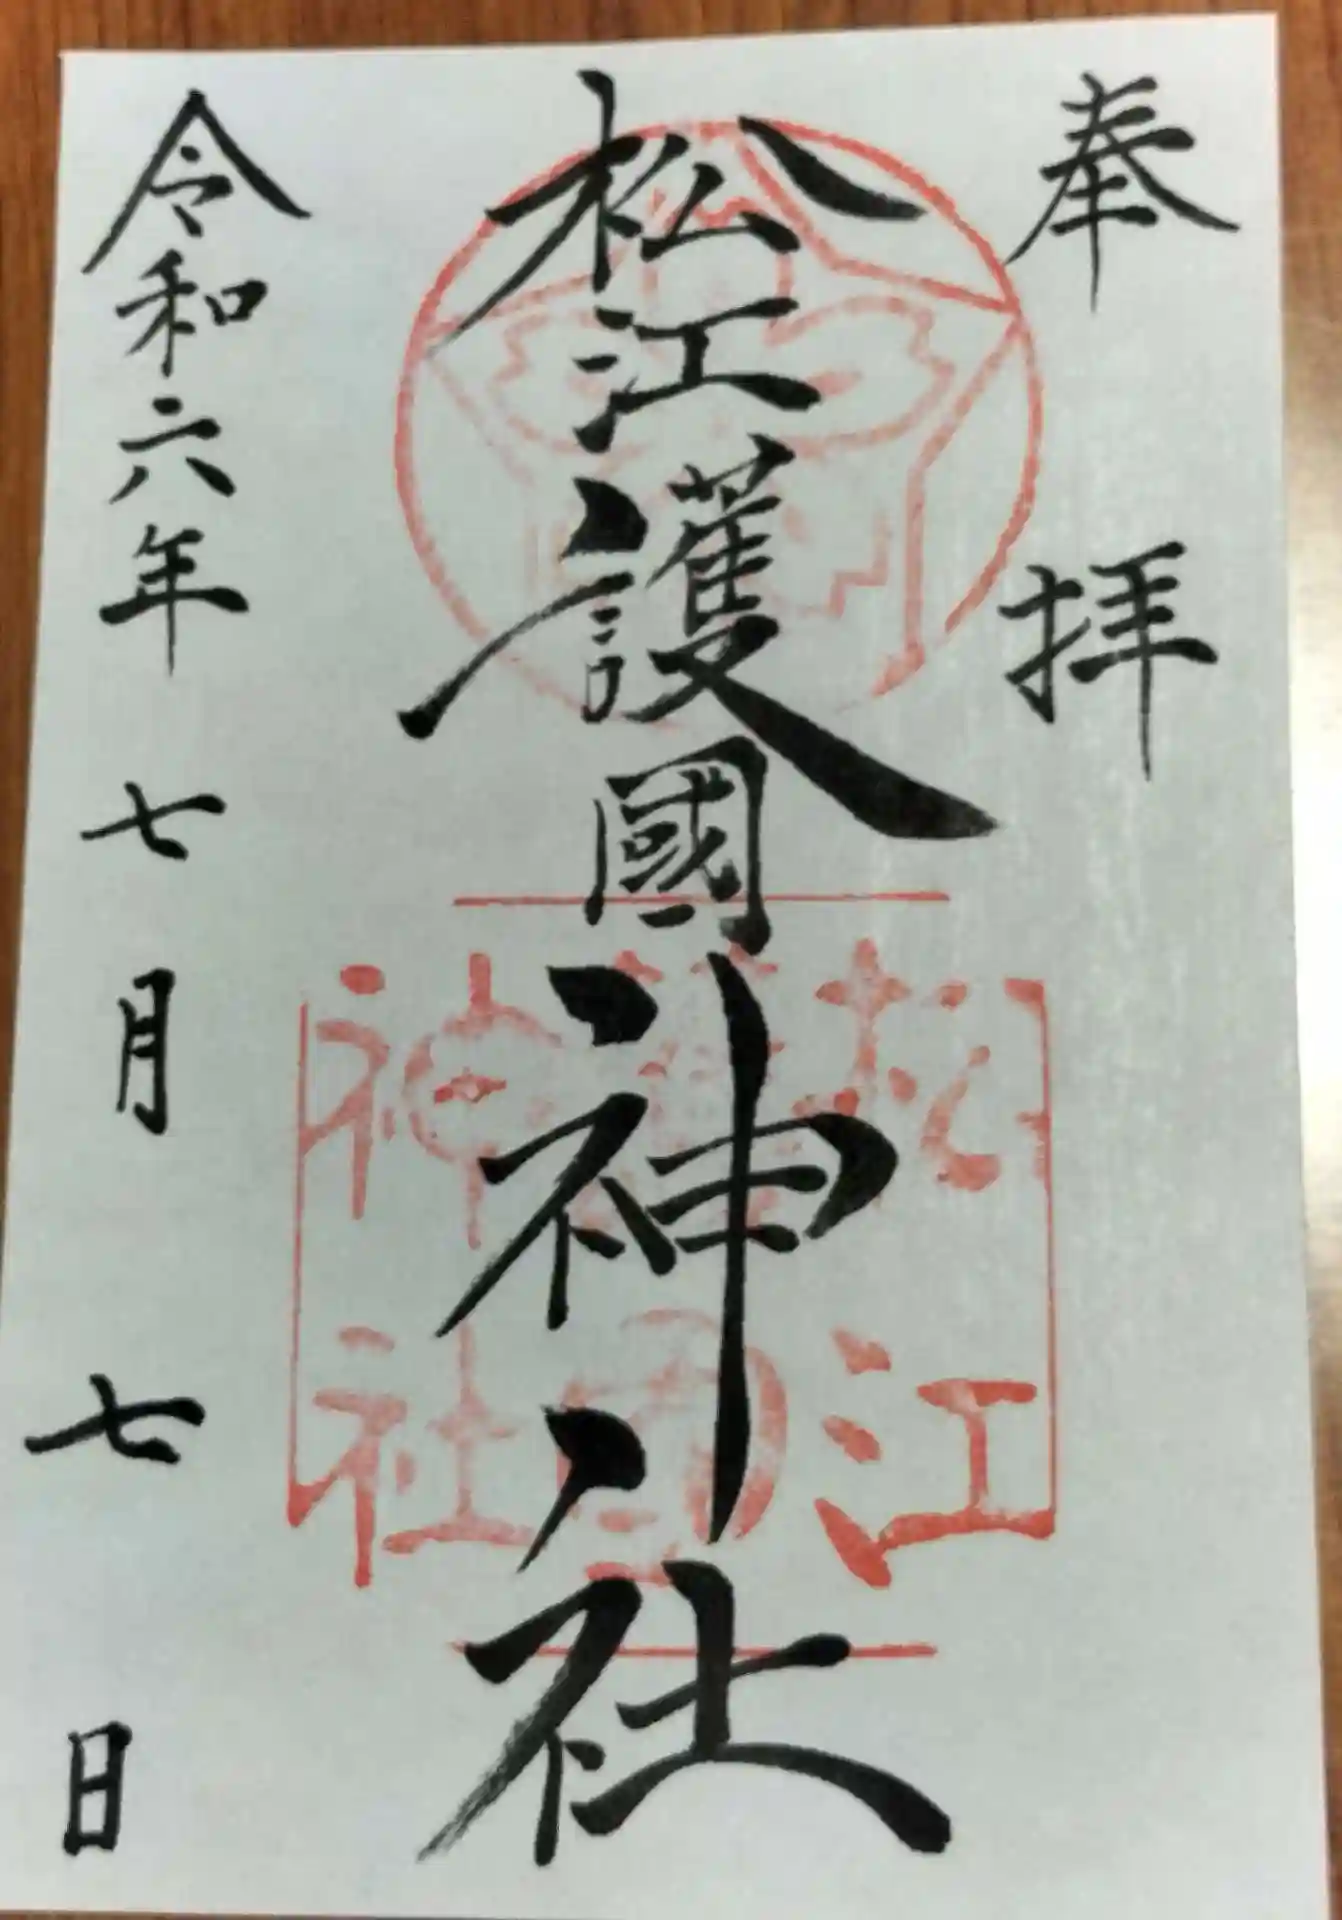 奉拝
松江護國神社
松江
護國
神社
令和六年七月七日